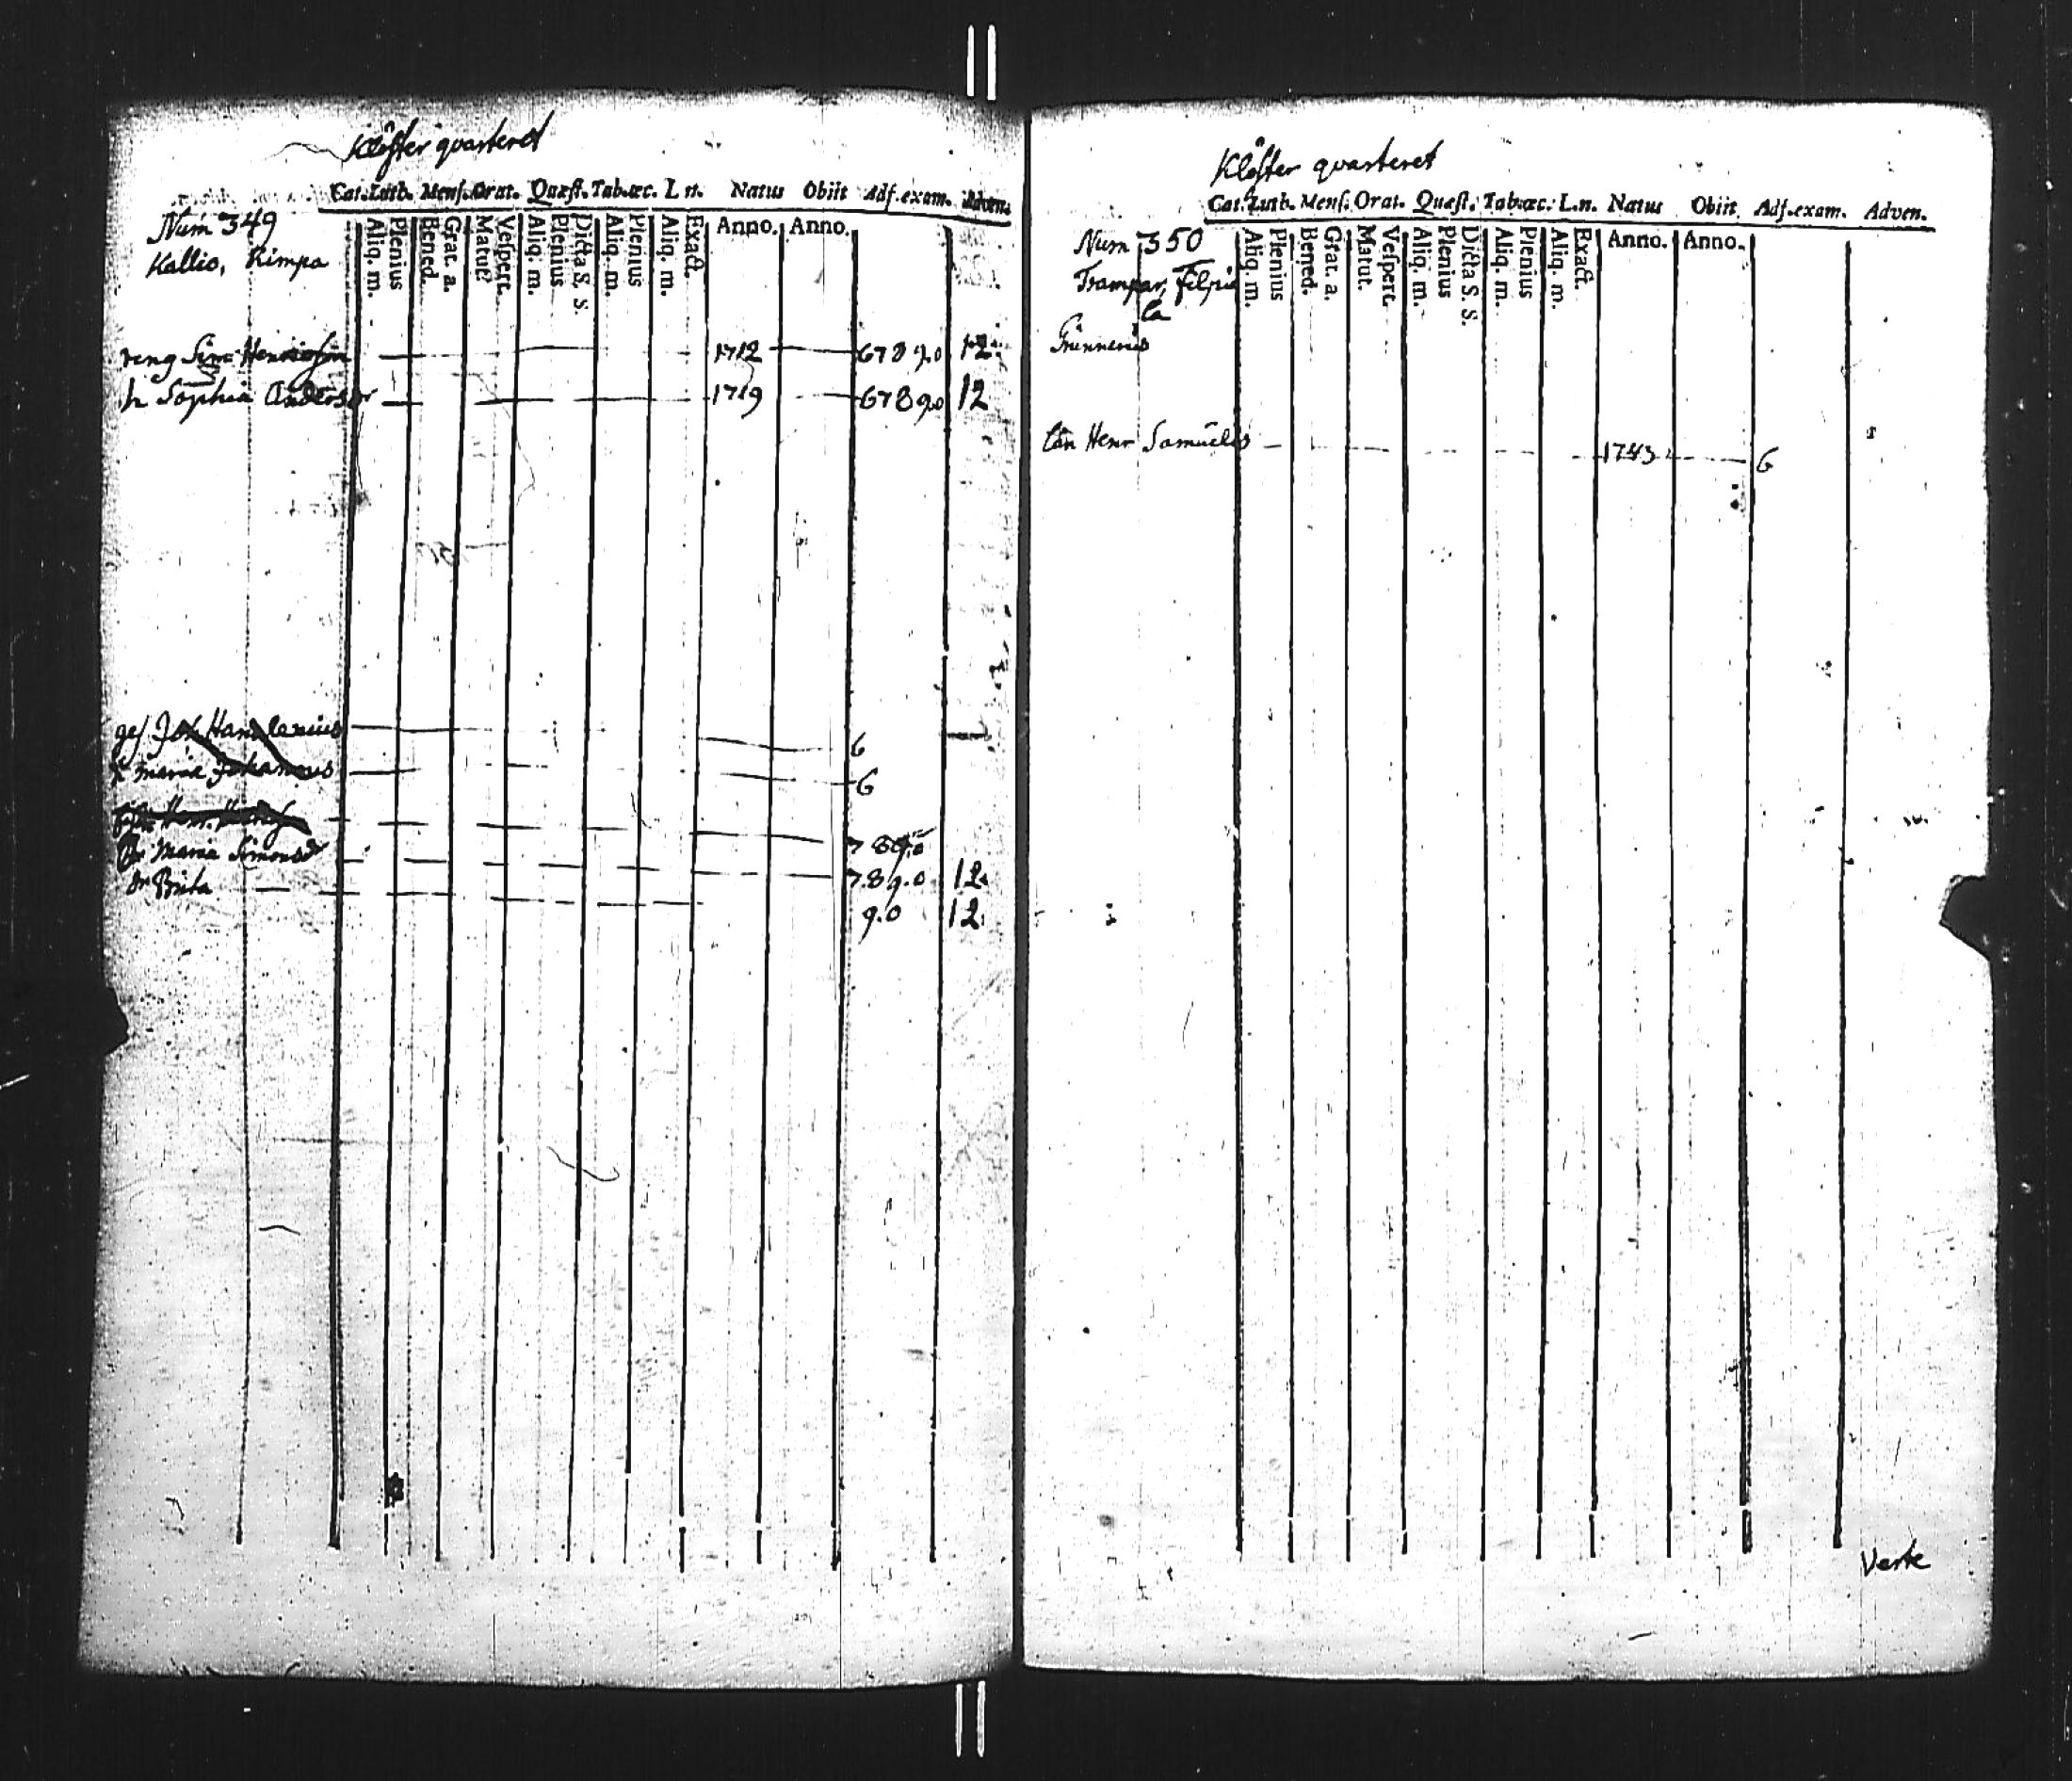 Klöster qvarteret
Cat. Luth. Mens. Orat. Quæst. Tab. œc. L. n. Natus Obiit Adf. exam. Adven.
Aliq. m. Plenius Bened. Grat. a. Matut. Vespert. Aliq. m. Plenius Dicta S. S. Aliq. m. Plenius Aliq. m. Exact. Anno. Anno.
Num 349
Kallio, Rimpa
Sim Henricsson 1712 6 7 8 9.0 12.
h Sophia Anders dr 1719 6 7 8 9.0 12
6
Maria Johannis 6
7 8 9.0
Maria Simons dr 7.8 9.0 12.
Dr Brita 9.0 12.
Klöster qvarteret
Cat. Luth. Mens. Orat. Quæst. Tab. œc. L. n. Natus Obiit Adf. exam. Adven.
Aliq. m. Plenius Bened. Grat. a. Matut. Vespert. Aliq. m. Plenius Dicta S. S. Aliq. m. Plenius Aliq. m. Exact. Anno. Anno.
Num 350
Henr Samuelis 1743 6
Verte